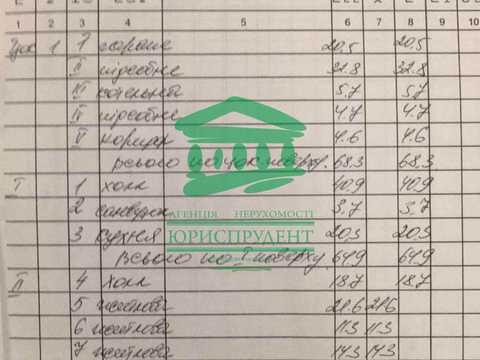 1 2 3 4 5 6 7 8 9 10
Цок 1 I гараж 20.5 20.5
II підсобне 32.8 32.8
III котельня 5.7 5.7
IV підсобне 4.7 4.7
V коридор 4.6 4.6
Всього по цок. поверху. 68.3 68.3
I 1 хол 40.9 40.9
2 санвузол 3.7 3.7
АГЕНЦІЯ НЕРУХОМОСТІ
3 кухня 20.3 20.3
ЮРИСПРУДЕНТ
Всього по I поверху. 64.9 64.9
II 4 хол 18.7 18.7
5 житлова 21.6 21.6
6 житлова 11.3 11.3
7 житлова 14.3 14.3